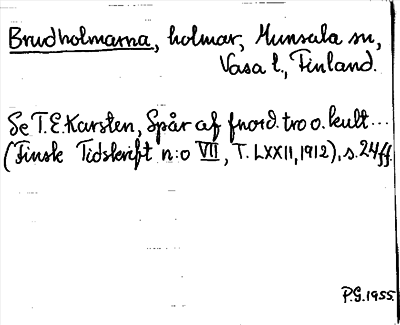 Brudholmarna, holmar, Munsala sn,
Vasa l., Finland.
Se T.E. Karsten, Spår af fnord. tro o. kult...
(Finsk Tidskrift n:o VII, T. LXXII, 1912), s. 24 ff.
P.G. 1955.